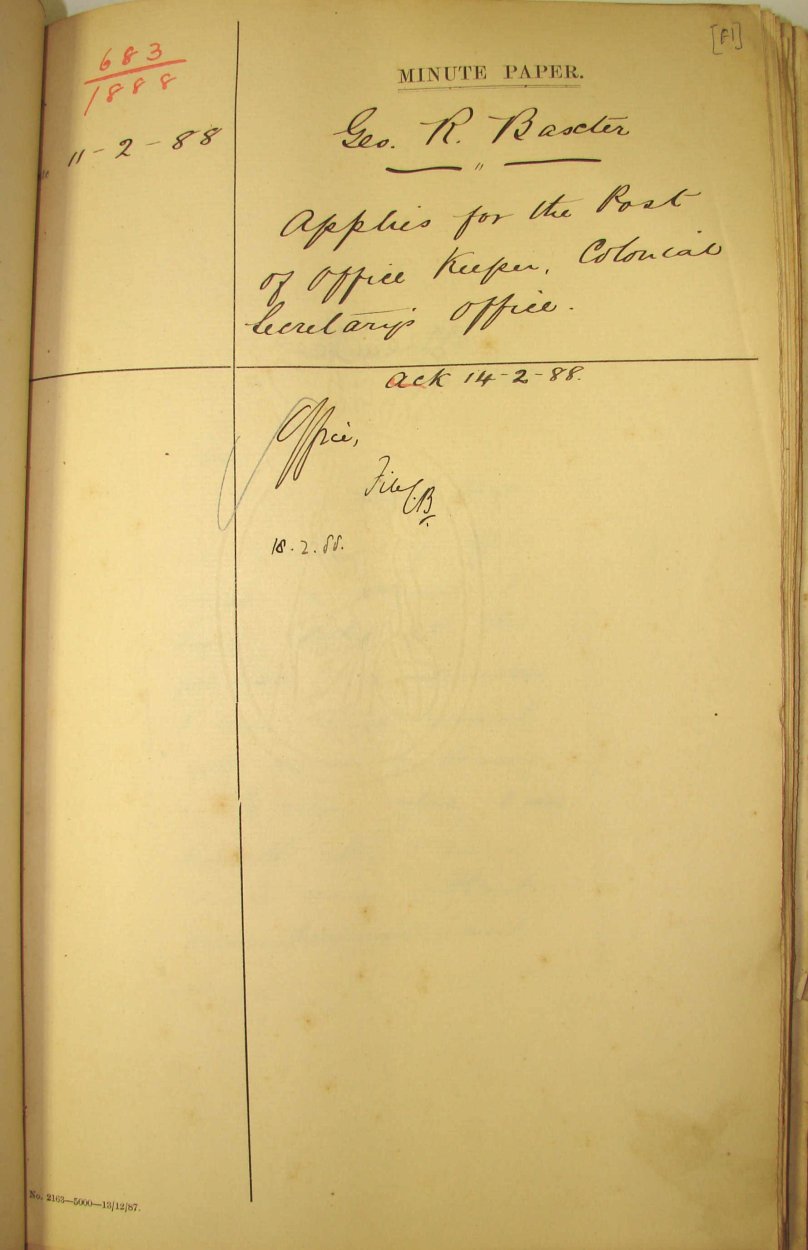 [F1]
683
1888
11-2-88
MINUTE PAPER.
Geo. R. Baxter
Applies for the Post
of Office Keeper, Colonial
Secretary's Office.
Ack 14-2-88.
Office,
File
18.2.88.
No. 2163—5000—13/12/87.